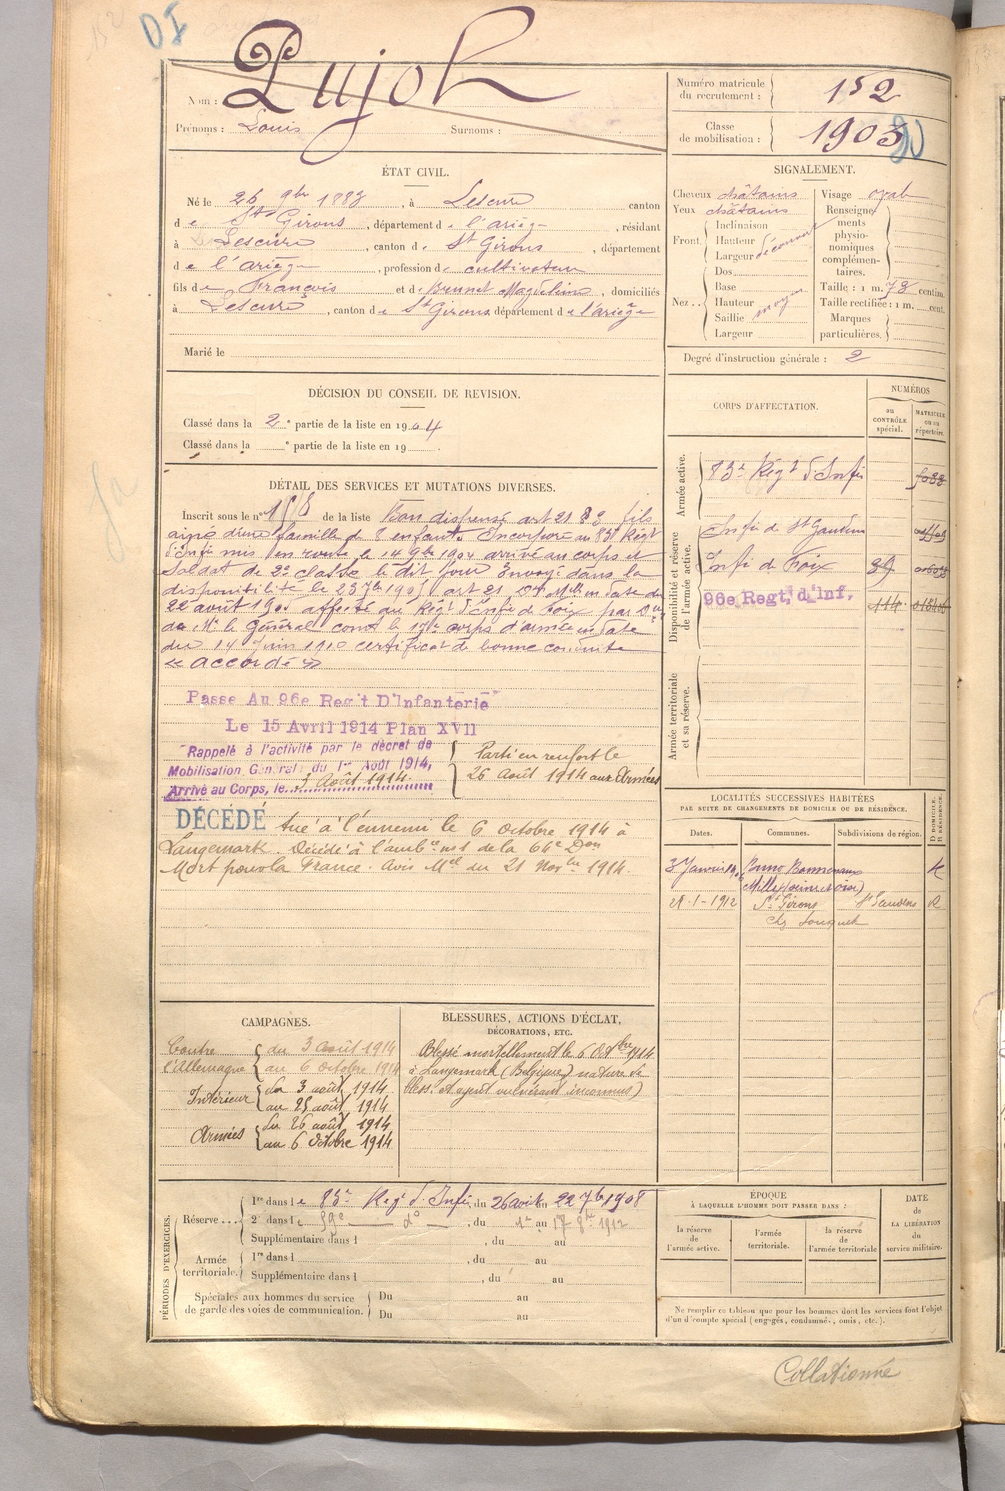 DI
Nom : Pujol
Prénoms : Louis Surnoms :
Numéro matricule du recrutement : 152
Classe de mobilisation : 1903
ÉTAT CIVIL.
Né le 26 9bre 1883, à Lescure canton
de St Girons, département de l'ariège, résidant
à Lescure, canton de St Girons, département
de l'ariège, profession de cultivateur
fils de François et de Brunet Magdeleine, domiciliés
à Lescure, canton de St Girons département de l'ariège
Marié le
SIGNALEMENT.
Cheveux châtains Visage oval
Yeux châtains
Front. Inclinaison Hauteur Largeur découvert
Nez.. Dos Base Hauteur Saillie Largeur moyen
Renseignements physionomiques complémentaires.
Taille : 1 m. 78 centim.
Taille rectifiée : 1 m. cent.
Marques particulières.
Degré d'instruction générale : 2
DÉCISION DU CONSEIL DE REVISION.
Classé dans la 2e partie de la liste en 1904
Classé dans la e partie de la liste en 19
DÉTAIL DES SERVICES ET MUTATIONS DIVERSES.
Inscrit sous le n° de la liste Bon dispensé art 21 fils
ainé d'une famille de 8 enfants Incorporé au 83e Régt
d'Infie mis en route le 14 9bre 1904 arrivé au corps et
soldat de 2e classe le dit jour Envoyé dans la
disponibilité le 23 7bre art 21 en date du
22 août affecté au Régt d'Infie de Foix par
de Mr le Général comt le 17e corps d'armée en date
du 14 juin 1910 certificat de bonne conduite
« accordé »
Passe Au 96e Reg't D'Infanterie
Le 15 Avril 1914 Plan XVII
Rappelé à l'activité par le décret de
Mobilisation Générale du 1er Août 1914,
Arrivé au Corps, le 3 Août 1914.
Parti en renfort le
26 août 1914 aux Armées
DÉCÉDÉ tué à l'ennemi le 6 octobre 1914 à
Langemark. Décédé à l'ambce n° 1 de la 66e Don
Mort pour la France. Avis Mel du 21 Novbre 1914.
CORPS D'AFFECTATION.
NUMÉROS
au CONTRÔLE spécial.
MATRICULE ou au répertoire.
Armée active.
83e Régt d'Infie
Disponibilité et réserve de l'armée active.
Infie de St Gaudens
Infie de Foix
96e Regt, d'Inf, 114
Armée territoriale et sa réserve.
LOCALITÉS SUCCESSIVES HABITÉES
PAR SUITE DE CHANGEMENTS DE DOMICILE OU DE RÉSIDENCE.
Dates. Communes. Subdivisions de région. D DOMICILE. R RÉSIDENCE.
3 Janvier
Milly (seine et oise)
21-1-1912 St Girons St Gaudens R
CAMPAGNES.
Contre l'Allemagne du 3 août 1914
au 6 octobre 1914
Intérieur du 3 août 1914
au 25 août 1914
Armées du 26 août 1914
au 6 octobre 1914
BLESSURES, ACTIONS D'ÉCLAT,
DÉCORATIONS, ETC.
Blessé mortellement le 6 Octbre 1914
à Langemark (Belgique) nature de
bless. et agent vulnérant inconnus)
PÉRIODES D'EXERCICES.
Réserve... 1re dans le 83e Régt d'Infie, du 26 août au 22 7bre 1908
2e dans le 59e do, du 1er au 17 8bre 1912
Supplémentaire dans l , du au
Armée territoriale. 1re dans l , du au
Supplémentaire dans l , du au
Spéciales aux hommes du service Du au
de garde des voies de communication. Du au
ÉPOQUE
À LAQUELLE L'HOMME DOIT PASSER DANS :
la réserve de l'armée active.
l'armée territoriale.
la réserve de l'armée territoriale
DATE de LA LIBÉRATION du service militaire.
Ne remplir ce tableau que pour les hommes dont les services font l'objet
d'un décompte spécial (engagés, condamnés, omis, etc.).
Collationné